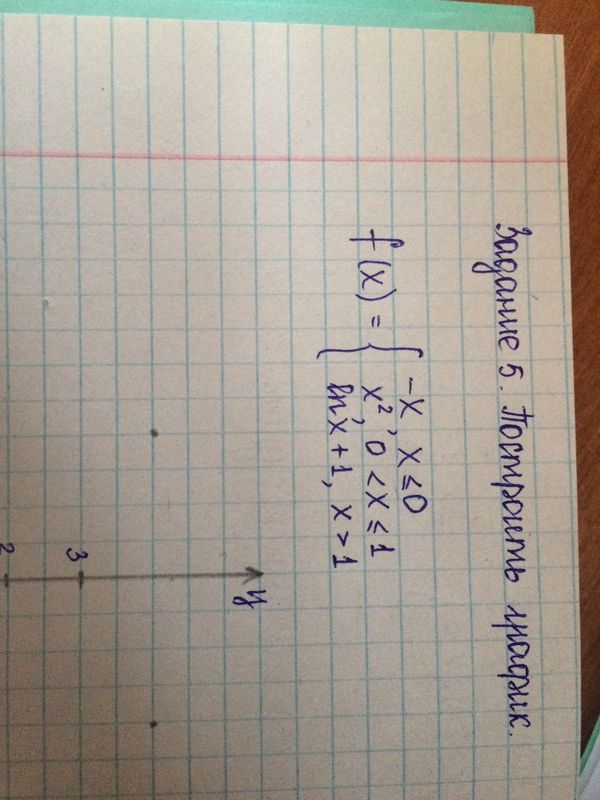 Задание 5. Построить график.
f(x) = { -x, x ≤ 0
x², 0 < x ≤ 1
ln x + 1, x > 1
y
3
2